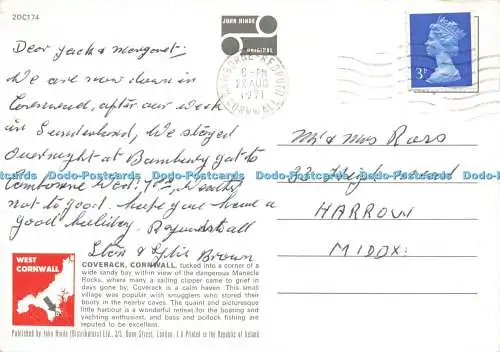 2DC174
JOHN HINDE
ORIGINAL
6-PM
22 AUG
1971
CORNWALL
3P
Dear Jack & Margaret.
We are now down in
Cornwall, after our week
in Sunderland, We stayed
overnight at Banbury got to
Camborne Wed!
not to good. hope you have a
good holiday. Regards to all
Brown
Mr & Mrs Ross
33
HARROW
MIDDX:
WEST
CORNWALL
COVERACK, CORNWALL, tucked into a corner of a
wide sandy bay within view of the dangerous Manacle
Rocks, where many a sailing clipper came to grief in
days gone by, Coverack is a calm haven. This small
village was popular with smugglers who stored their
booty in the nearby caves. The quaint and picturesque
little harbour is a wonderful retreat for the boating and
yachting enthusiast, and bass and pollock fishing are
reputed to be excellent.
Published by John Hinde (Distributors) Ltd., 3/5, Dunn Street, London. E.8 Printed in the Republic of Ireland.
Dodo-Postcards Dodo-Postcards Dodo-Postcards Dodo-Postcards